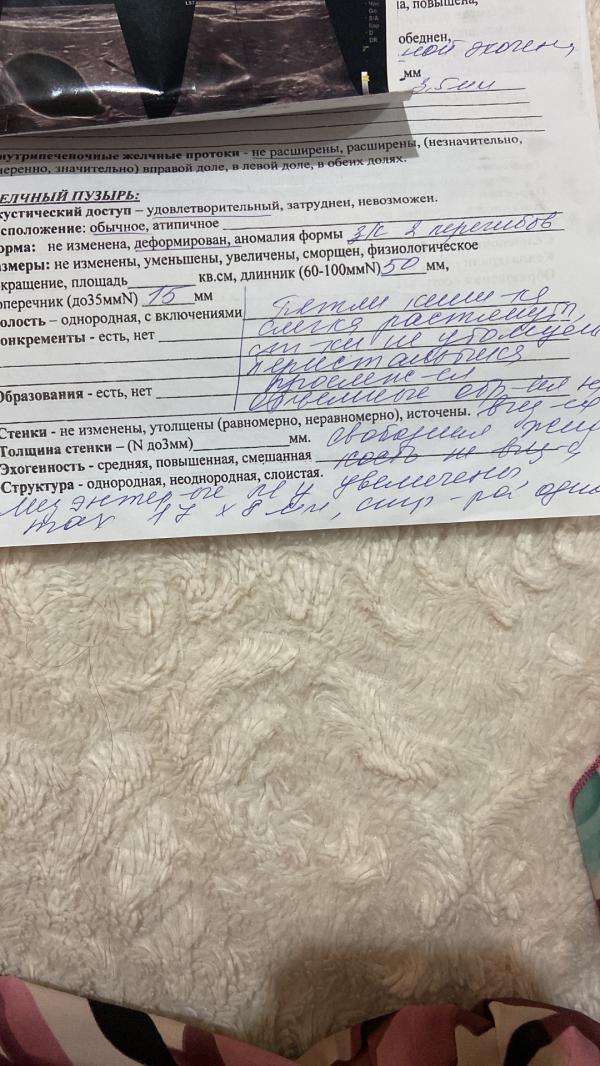 LS7
S/A
Кар
D
DR
а, повышена,
обеднен,
ной эхоген,
мм
3,5мм
нутрипеченочные желчные протоки - не расширены, расширены, (незначительно,
меренно, значительно) вправой доле, в левой доле, в обеих долях.
ЕЛЧНЫЙ ПУЗЫРЬ:
кустический доступ – удовлетворительный, затруднен, невозможен.
сположение: обычное, атипичное
орма: не изменена, деформирован, аномалия формы з/с 2 перегибов
змеры: не изменены, уменьшены, увеличены, сморщен, физиологическое
кращение, площадь кв.см, длинник (60-100ммN) 50 мм,
оперечник (до35ммN) 15 мм
олость – однородная, с включениями
Петли кише-ка
онкременты - есть, нет
слегка растянуты,
ст-ки не утолщены
перистальтика
прослеж-ся
Образования - есть, нет
объемные обр-ия не
Стенки - не изменены, утолщены (равномерно, неравномерно), источены.
Толщина стенки – (N до3мм) мм. свободная жид
Эхогенность - средняя, повышенная, смешанная кость не
Структура - однородная, неоднородная, слоистая.
Мезэнтер-ые л/у увеличены
max 17 x 8 мм, стр-ра одно